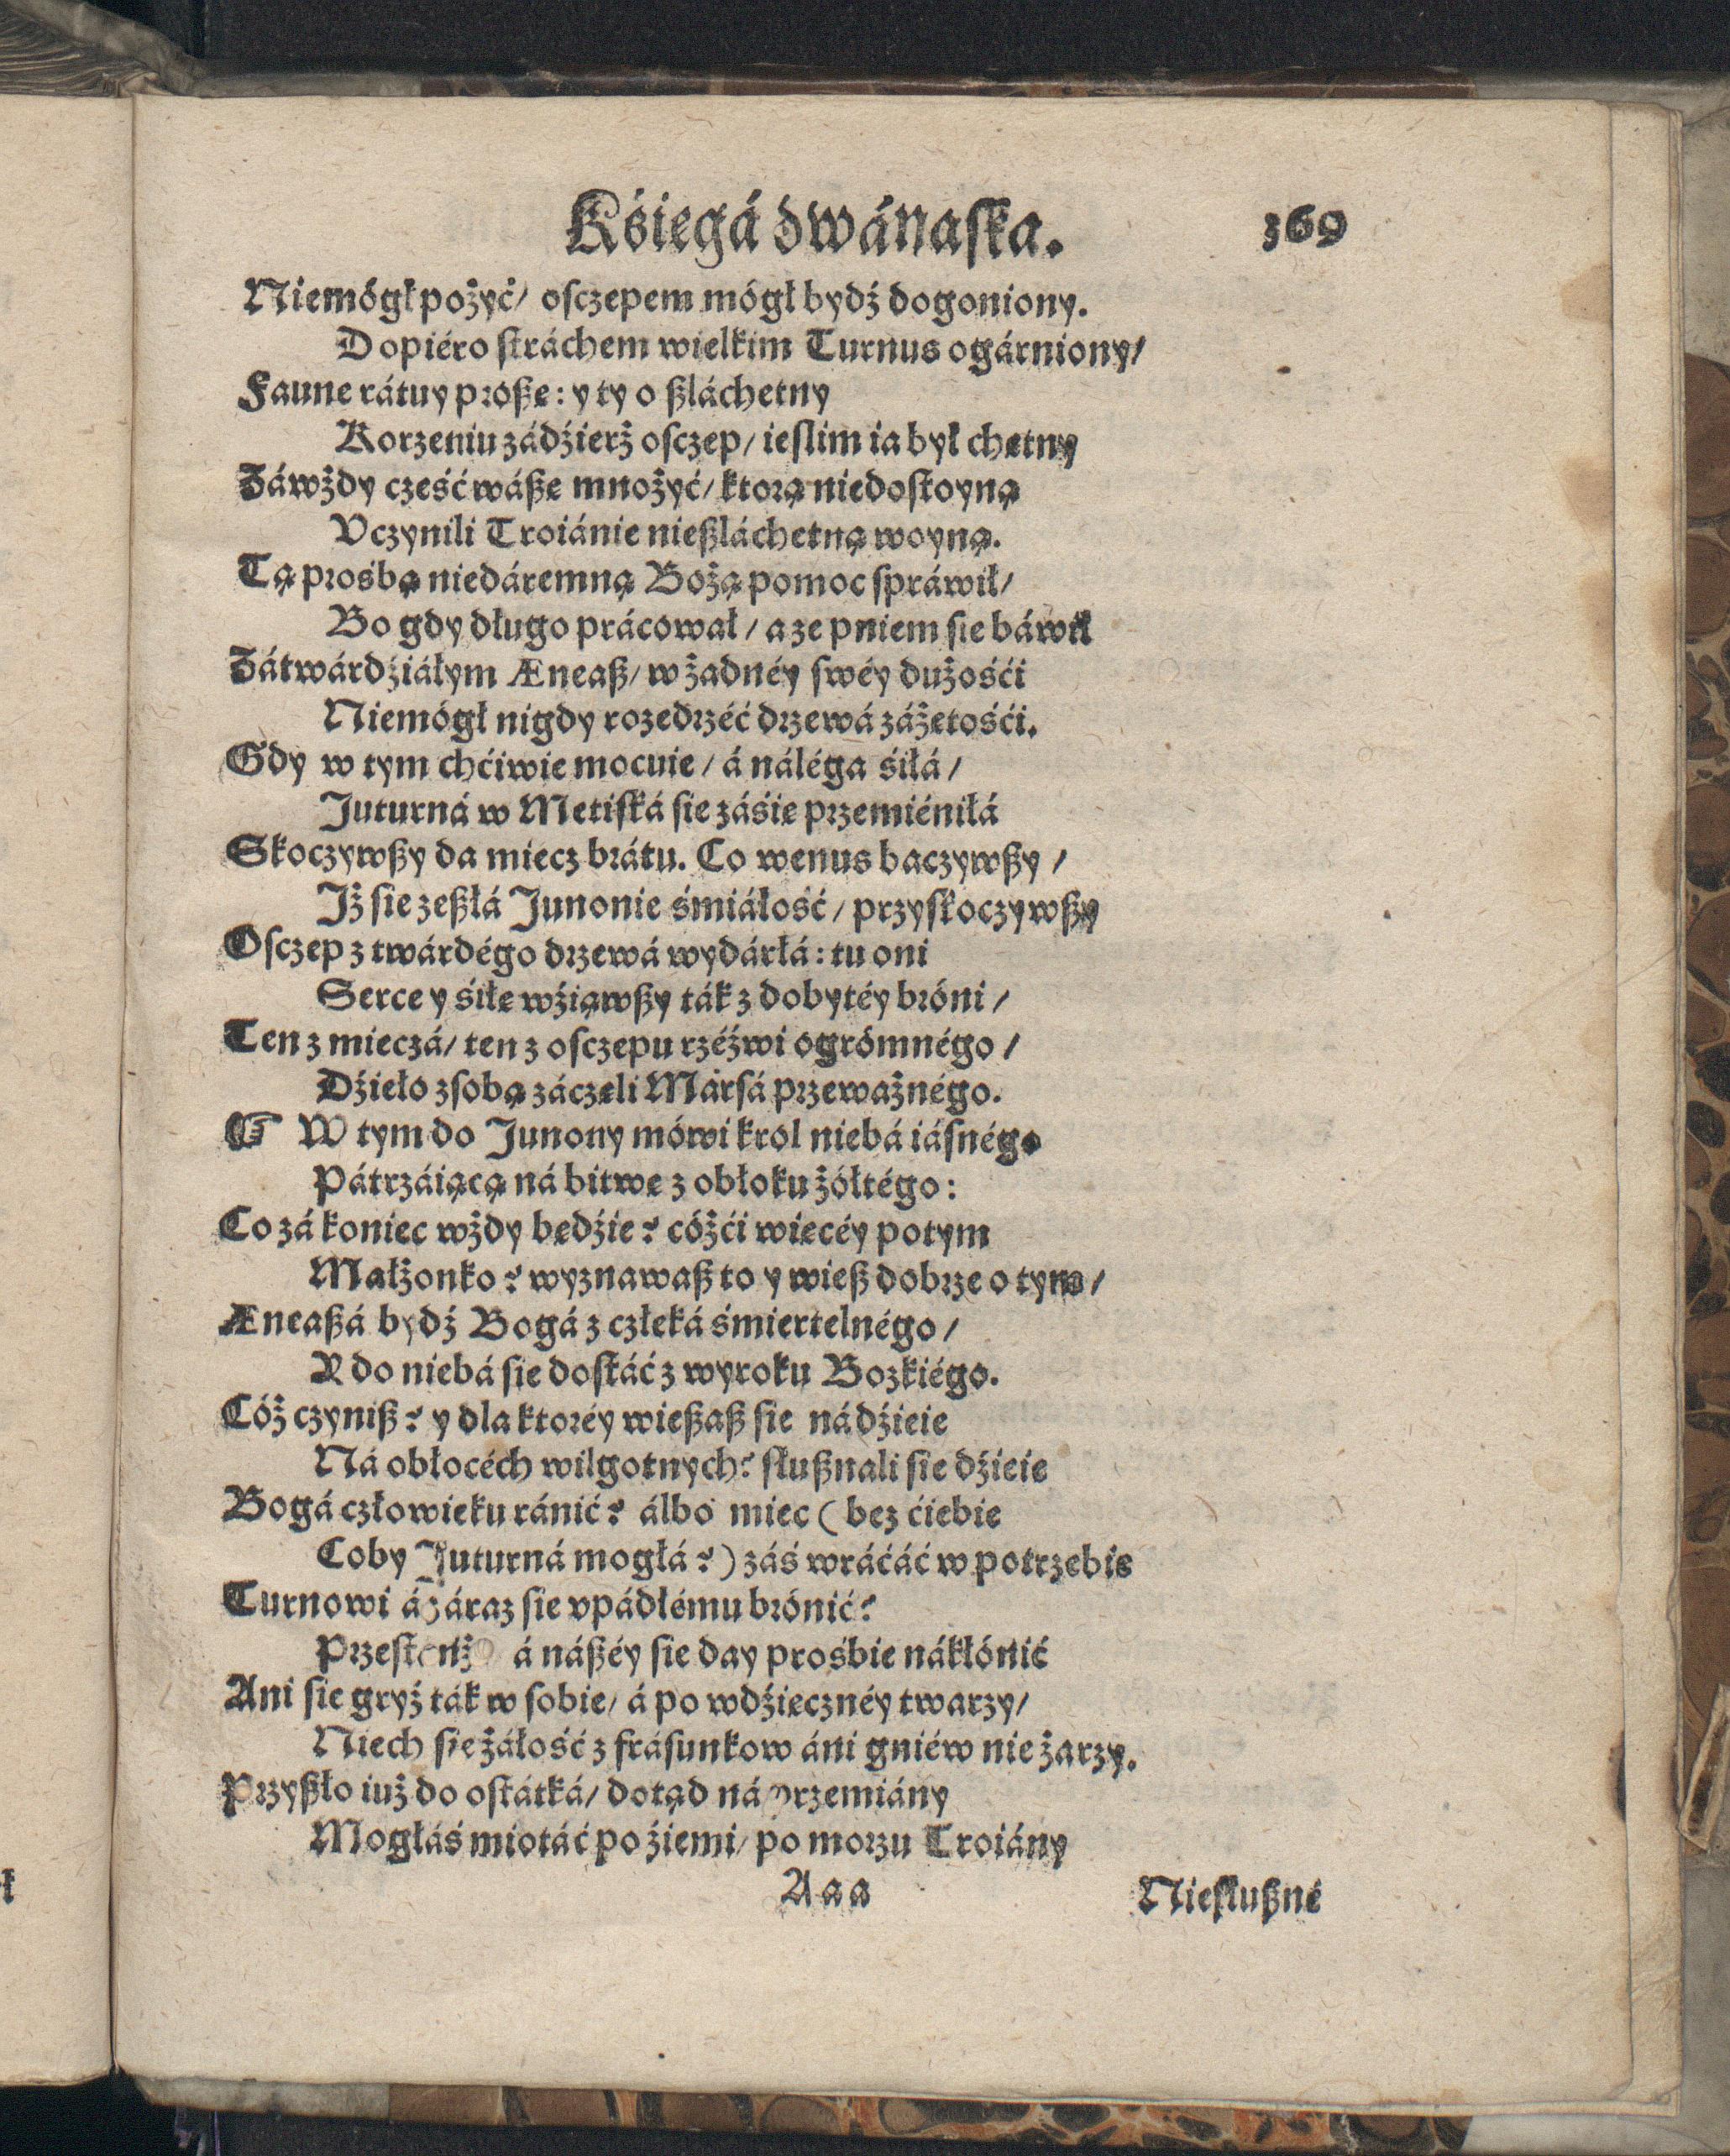 Kśięgá dwánaſka. 369
Niemógł pożyć/ oſczepem mógł bydź dogoniony.
Dopiéro ſtráchem wielkim Turnus ogárniony/
Faune rátuy proßę: y ty o ßláchetny
Korzeniu zádźierż oſczep/ ieſlim ia był chętny
Záwżdy cześć wáßę mnożyć/ ktorą niedoſtoyną
Vczynili Troiánie nießláchetną woyną.
Tą prośbą niedáremną Bożą pomoc ſpráwił/
Bo gdy długo prácował/ a ze pniem ſie báwił
Zátwárdźiáłym Æneaß/ w żadnéy ſwéy dużośći
Niemógł nigdy rozedrzéć drzewá záżętośći.
Gdy w tym chćiwie mocuie/ á náléga śiłá/
Juturná w Metiſká ſie záśię przemiéniłá
Skoczywßy da miecz brátu. Co wenus baczywßy/
Jż ſie zeßłá Junonie śmiáłość/ przyſkoczywßy
Oſczep z twárdégo drzewá wydárłá: tu oni
Serce y śiłę wźiąwßy ták z dobytéy bróni/
Ten z mieczá/ ten z oſczepu rzéźwi ogrómnégo/
Dźieło z ſobą záczęli Márſá przeważnégo.
☞ W tym do Junony mówi krol niebá iáſnégo
Pátrzáiącą ná bitwę z obłoku żółtégo:
Co zá koniec wżdy będźie? cóżći więcéy potym
Małżonko? wyznawaß to y wieß dobrze o tym/
Æneaßá bydź Bogá z człeká śmiertelnégo/
Y do niebá ſie doſtáć z wyroku Bozkiégo.
Cóż czyniß? y dla ktoréy wießaß ſie nádźieie
Ná obłocéch wilgotnych? ſłußnali ſie dźieie
Bogá człowieku ránić? álbo miec (bez ćiebie
Coby Juturná mogłá?) záś wráćáć w potrzebie
Turnowi á záraz ſie vpádłému brónić?
á náßéy ſie day prośbie nákłónić
Ani ſie gryź ták w ſobie/ á po wdźięcznéy twarzy/
Niech ſie żáłość z fráſunkow áni gniéw nie żarzy.
Przyßło iuż do oſtátká/ dotąd ná przemiány
Mogłáś miotáć po źiemi/ po morzu Troiány
Aaa Nieſłußné